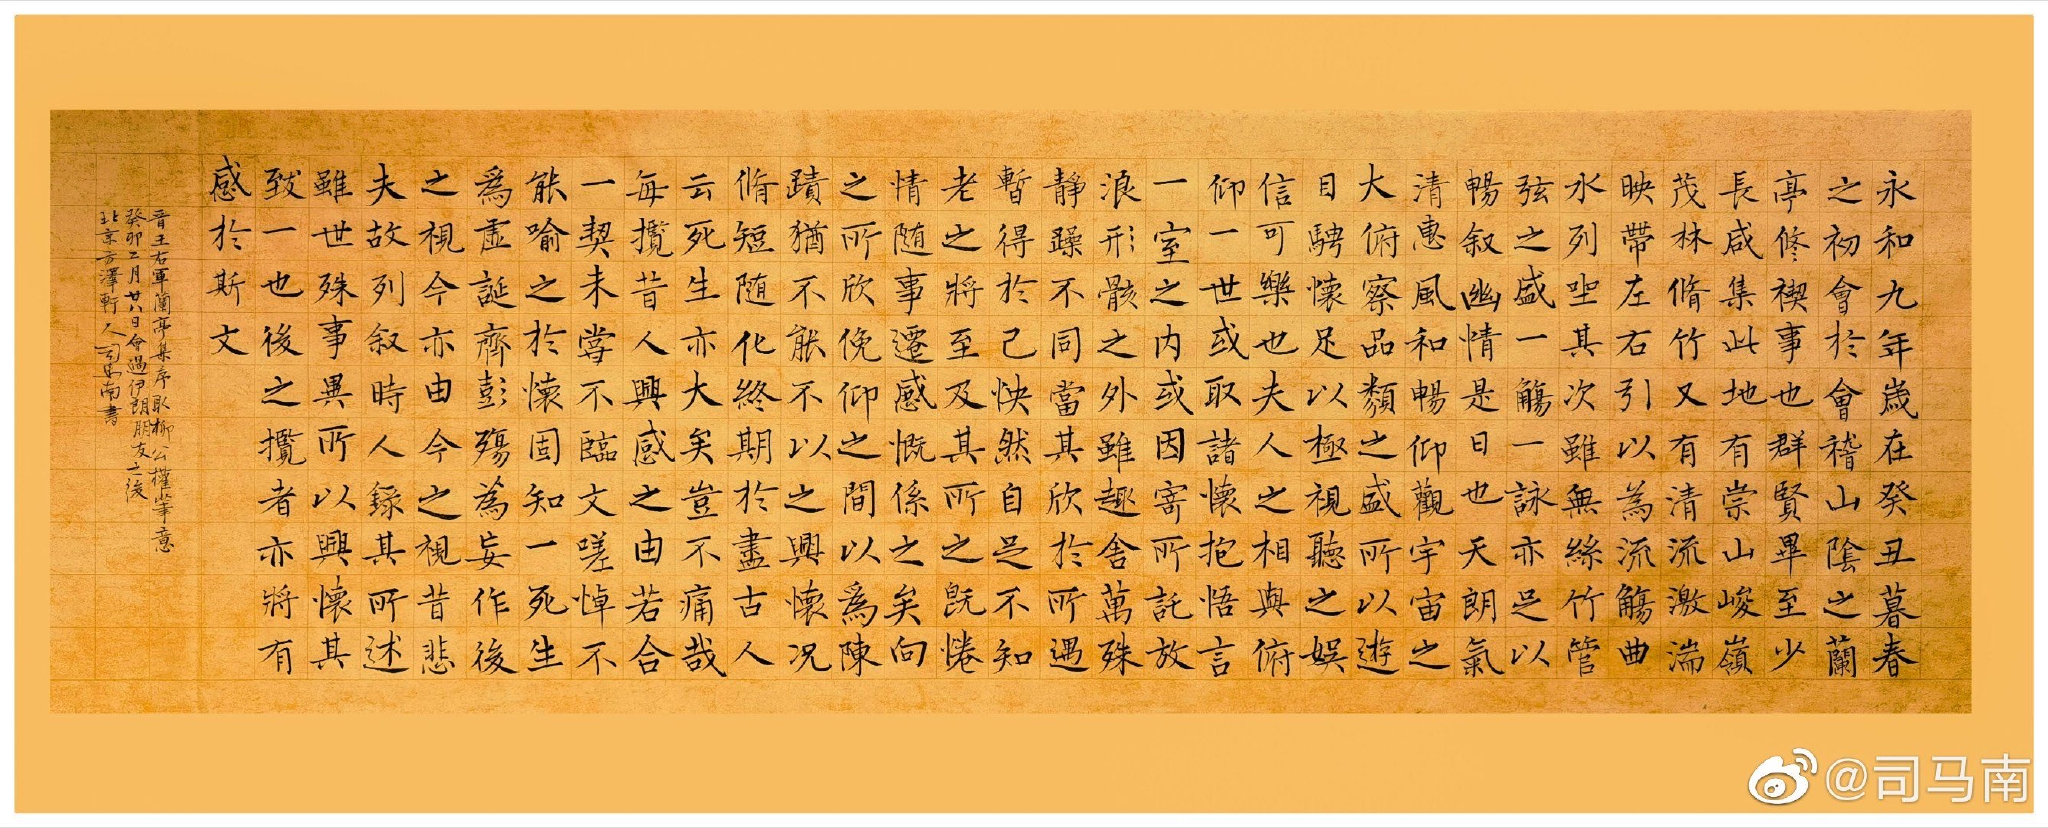 永和九年歲在癸丑暮春
之初會於會稽山陰之蘭
亭修禊事也群賢畢至少
長咸集此地有崇山峻嶺
茂林脩竹又有清流激湍
映帶左右引以為流觴曲
水列坐其次雖無絲竹管
弦之盛一觴一詠亦足以
暢叙幽情是日也天朗氣
清惠風和暢仰觀宇宙之
大俯察品類之盛所以遊
目騁懷足以極視聽之娛
信可樂也夫人之相與俯
仰一世或取諸懷抱悟言
一室之内或因寄所託放
浪形骸之外雖趣舍萬殊
靜躁不同當其欣於所遇
暫得於己快然自足不知
老之將至及其所之既惓
情随事遷感慨係之矣向
之所欣俛仰之間以為陳
蹟猶不能不以之興懷況
脩短随化終期於盡古人
云死生亦大矣豈不痛哉
每攬昔人興感之由若合
一契未嘗不臨文嗟悼不
能喻之於懷固知一死生
為虛誕齊彭殤為妄作後
之視今亦由今之視昔悲
夫故列叙時人錄其所述
雖世殊事異所以興懷其
致一也後之攬者亦將有
感於斯文
晉王右軍蘭亭集序取柳公權筆意
癸卯二月廿八日會過伊朗朋友之後
北京方澤軒人司馬南書
@司马南